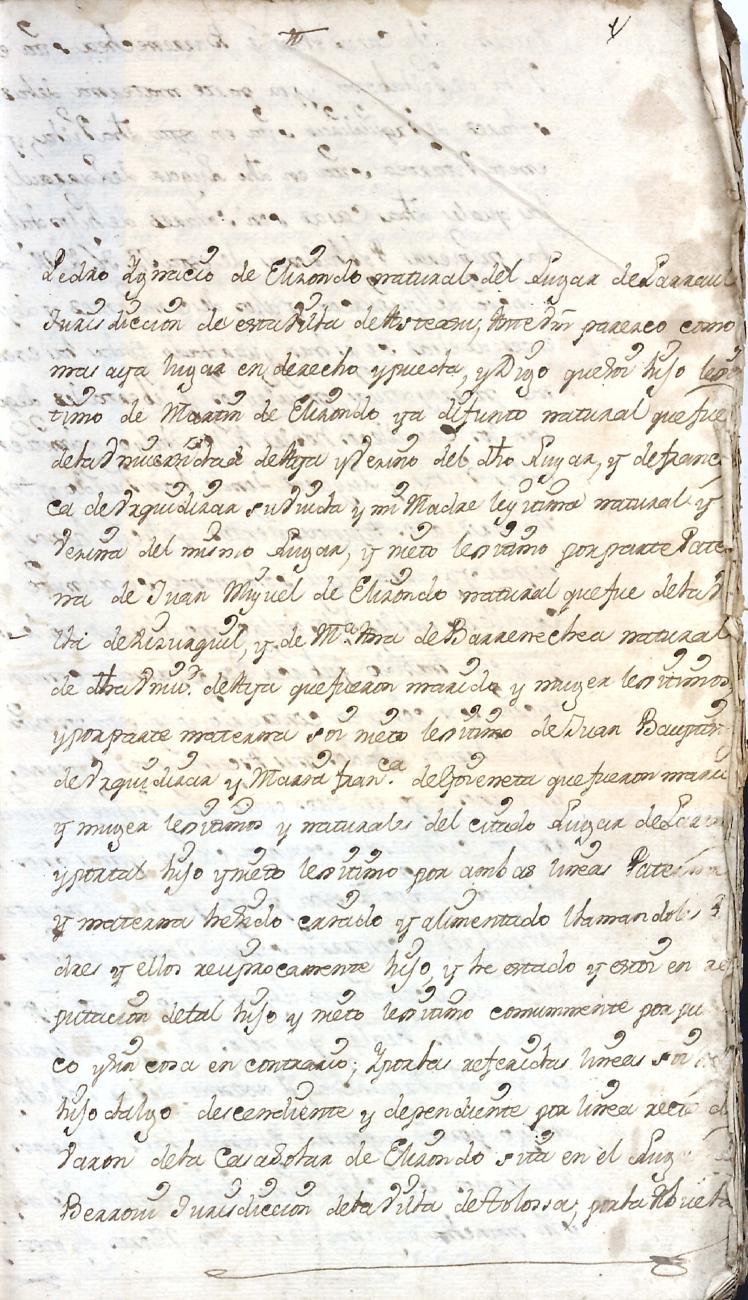 Pedro Ygnacio de Elizondo natural del Lugar de Larraul
Jurisdiccion de esta Villa de Asteasu, Ante Vm parezco como
mas aya lugar en derecho y pueda, y Digo que soi hijo lexi
timo de Martin de Elizondo ya difunto natural que fue
dela Vniversidad de Aya y Vecino del dho Lugar, y de franc
ca de Vrquidizar su Viuda y mi Madre legitima natural y
Vecina del mismo Lugar, y nieto lexitimo por parte Pater
na de Juan Miguel de Elizondo natural que fue dela V
lla de Aizurquil, y de Mª Ana de Barrenechea natural
de dha Vniv.ᵈ de Aya que fueron marido y muger lexitimos,
y por parte materna soi nieto lexitimo de Juan Baupta
de Vrquidizar y Maria fran.ca de Goreneta que fueron mari
y muger lexitimos y naturales del citado Lugar de Larra
y portal hijo y nieto lexitimo por ambas lineas Paterna
y materna he sido criado y alimentado llamandoles P
dres y ellos reciprocamente hijo, y he estado y estoi en re
putacion detal hijo y nieto lexitimo comunmente por pu
co y sin cosa en contrario; Y por las referidas lineas soi
hijo dalgo descendiente y dependiente por linea recta d
Varon dela Casa Solar de Elizondo sita en el Lug
Berrovi Jurisdiccion dela Villa de Tolossa, por la Abuela